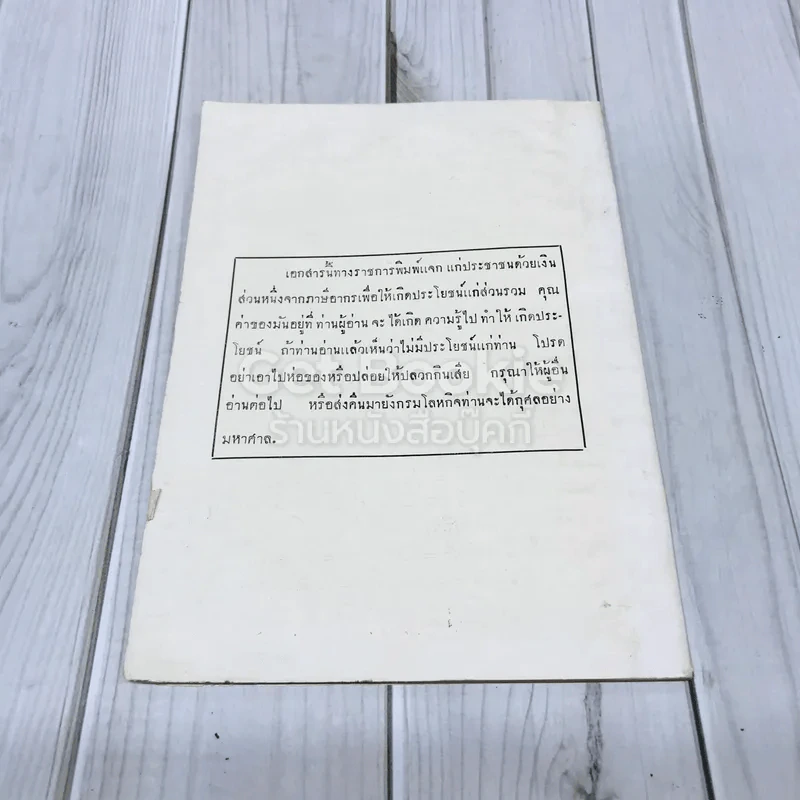 เอกสารนี้ทางราชการพิมพ์แจก แก่ประชาชนด้วยเงิน
ส่วนหนึ่งจากภาษีอากรเพื่อให้เกิดประโยชน์แก่ส่วนรวม คุณ
ค่าของมันอยู่ที่ ท่านผู้อ่าน จะ ได้เกิด ความรู้ไป ทำให้ เกิดประ-
โยชน์ ถ้าท่านอ่านแล้วเห็นว่าไม่มีประโยชน์แก่ท่าน โปรด
อย่าเอาไปห่อของหรือปล่อยให้ปลวกกินเสีย กรุณาให้ผู้อื่น
อ่านต่อไป หรือส่งคืนมายังกรมโลหกิจท่านจะได้กุศลอย่าง
มหาศาล.
Get Bookie
ร้านหนังสือบุ๊คกี้